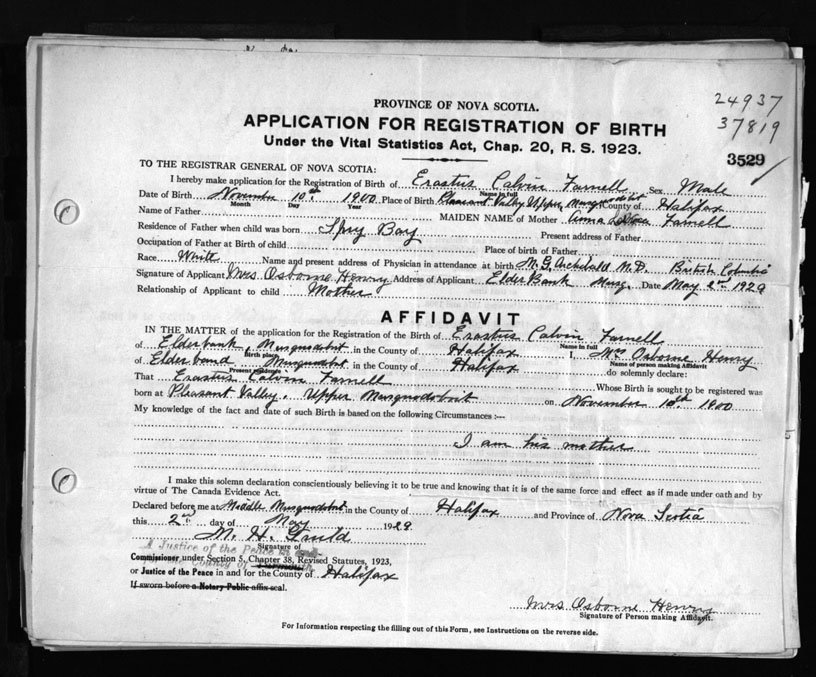 24937
37819
3529
PROVINCE OF NOVA SCOTIA.
APPLICATION FOR REGISTRATION OF BIRTH
Under the Vital Statistics Act, Chap. 20, R. S. 1923.
TO THE REGISTRAR GENERAL OF NOVA SCOTIA:
I hereby make application for the Registration of Birth of Erastus Calvin Farnell Sex Male
Name in full
Date of Birth November 10th 1900 Place of Birth Pleasant Valley Upper Musquodoboit County of Halifax
Month Day Year
Name of Father MAIDEN NAME of Mother Anna Farnell
Residence of Father when child was born Spry Bay Present address of Father
Occupation of Father at Birth of child Place of birth of Father
Race White Name and present address of Physician in attendance at birth M. G. Archibald M.D. British Columbia
Signature of Applicant Mrs Osborne Henry Address of Applicant Elder Bank Musq. Date May 2nd 1929
Relationship of Applicant to child Mother
AFFIDAVIT
IN THE MATTER of the application for Registration of the Birth of Erastus Calvin Farnell
Name in full
of Elderbank, Musquodobit in the County of Halifax I, Mrs Osborne Henry
Birth place Name of person making Affidavit
of Elderband Musquodobit in the County of Halifax do solemnly declare:
Present residence
That Erastus Calvin Farnell Whose Birth is sought to be registered was
born at Pleasant Valley, Upper Musquodoboit on November 10th 1900
My knowledge of the fact and date of such Birth is based on the following Circumstances:—
I am his mother
I make this solemn declaration conscientiously believing it to be true and knowing that it is of the same force and effect as if made under oath and by
virtue of The Canada Evidence Act.
Declared before me at Middle Musquodobit in the County of Halifax and Province of Nova Scotia
this 2nd day of May 1929
M. H. Gauld
Signature of
A Justice of the Peace in and
County of
Commissioner under Section 5, Chapter 38, Revised Statutes, 1923,
or Justice of the Peace in and for the County of Halifax
If sworn before a Notary Public affix seal.
Mrs Osborne Henry
Signature of Person making Affidavit.
For Information respecting the filling out of this Form, see Instructions on the reverse side.